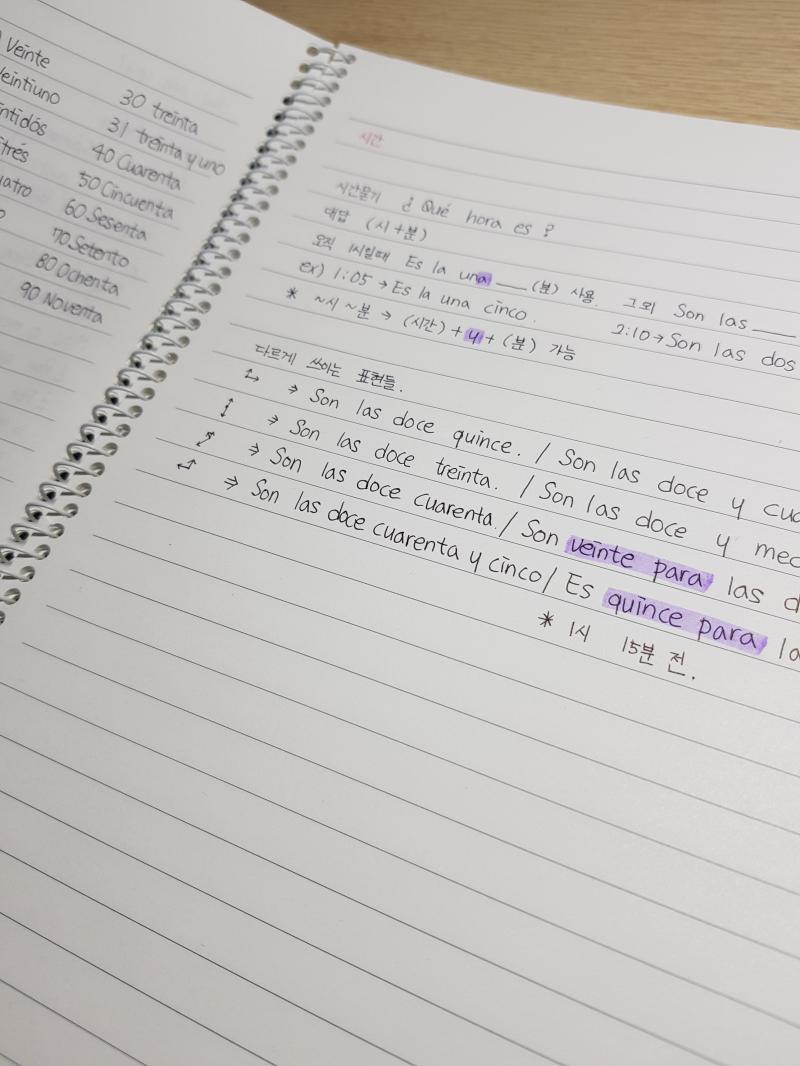 Veinte
30 treinta
31 treinta y uno
40 Cuarenta
50 Cincuenta
60 Sesenta
70 Setento
80 Ochenta
90 Noventa
시간
시간묻기 ¿Qué hora es?
대답 (시+분)
오직 1시일때 Es la una ___ (분) 사용. 그외 Son las ___
ex) 1:05 → Es la una cinco. 2:10 → Son las dos
* ~시 ~분 → (시간) + y + (분) 가능
다르게 쓰이는 표현들.
⇒ Son las doce quince. / Son las doce y
⇒ Son las doce treinta. / Son las doce y
⇒ Son las doce cuarenta. / Son veinte para las
⇒ Son las doce cuarenta y cinco / Es quince para
* 1시 15분 전.